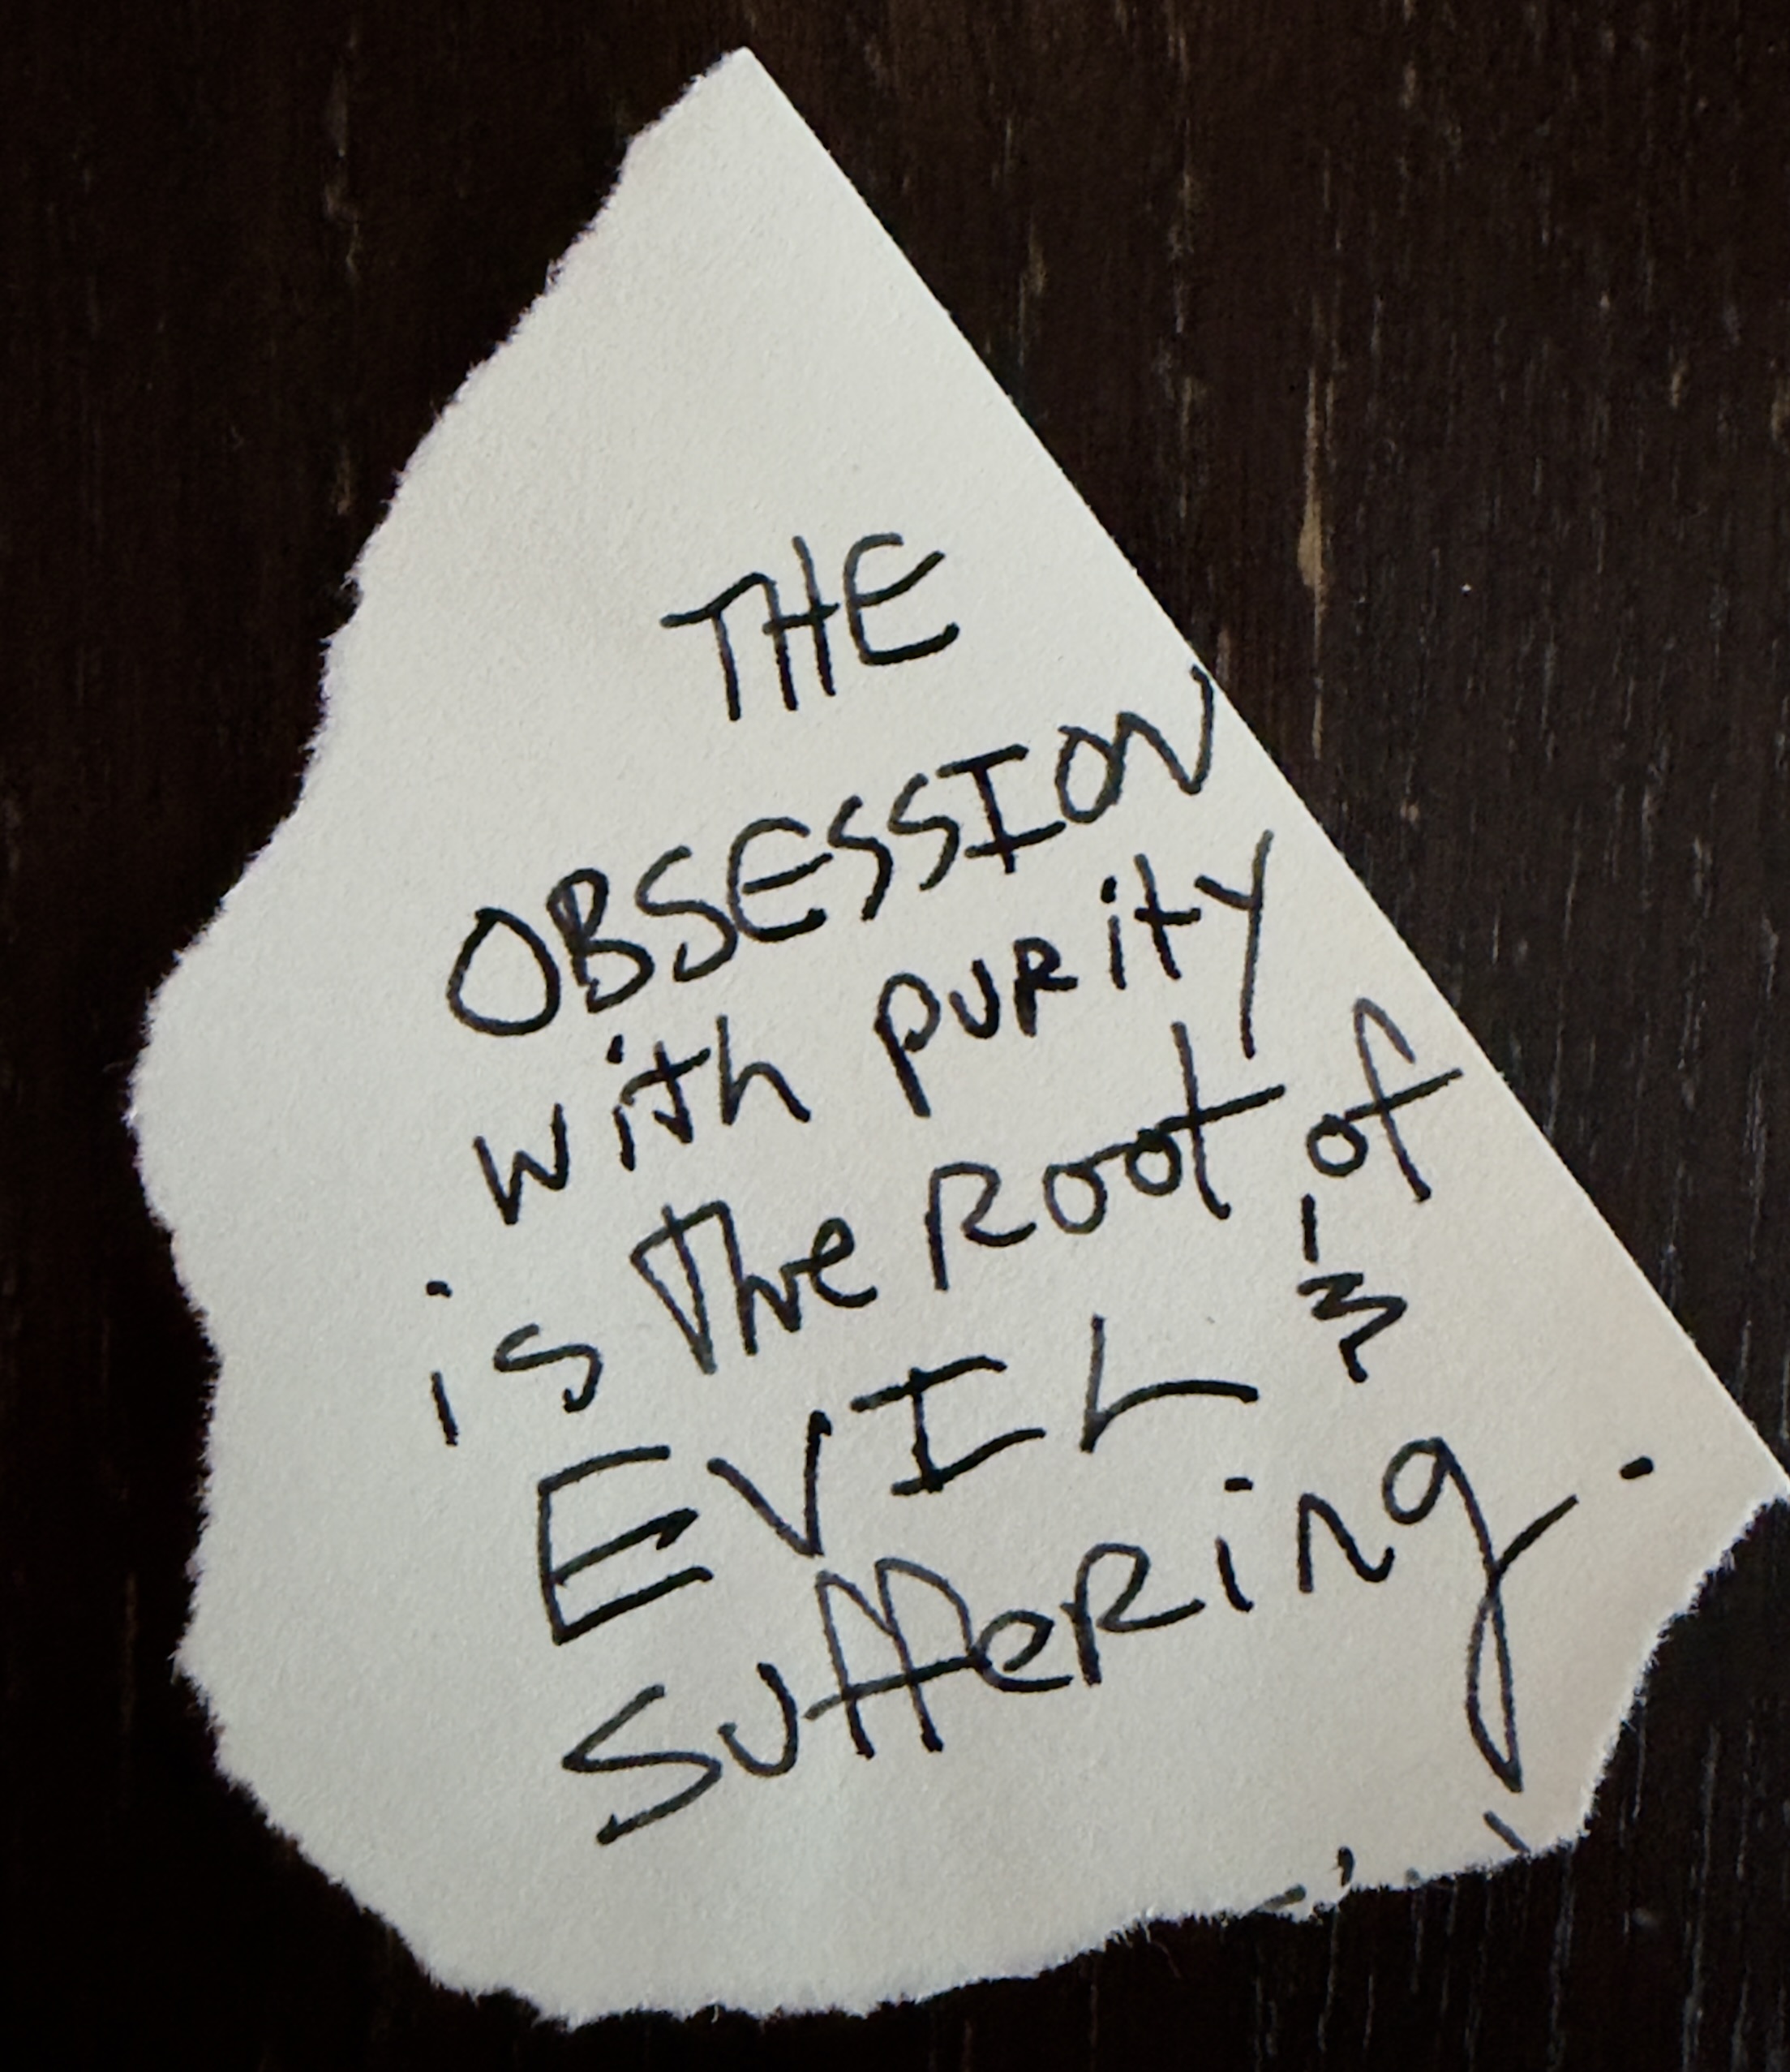 THE
OBSESSION
with purity
is the Root of
EVIL &
Suffering.